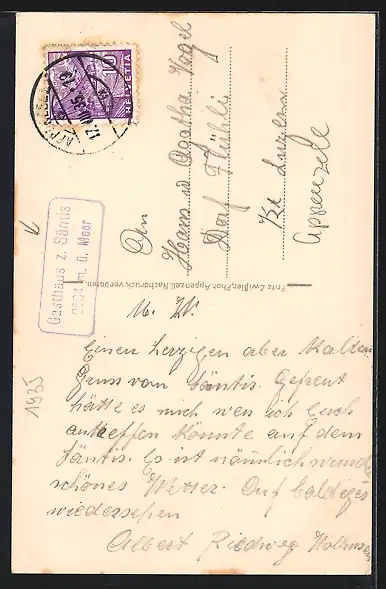 HELVETIA
10
17. VIII. 35
Gasthaus z. Säntis
m. ü. Meer
An
Herrn u Agatha Vogel
Dorf Flühli
Kt Luzern
Appenzell
Fritz Zwißler, Phot. Appenzell. Nachdruck verboten
M. W.
Einen herzigen aber kalten
Gruss vom Säntis. Gefreut
hätte es mich wen ich Euch
antreffen könnte auf dem
Säntis. Es ist nämlich wund
schönes Wetter. Auf baldiges
wiedersehen
Albert Riedweg
1935